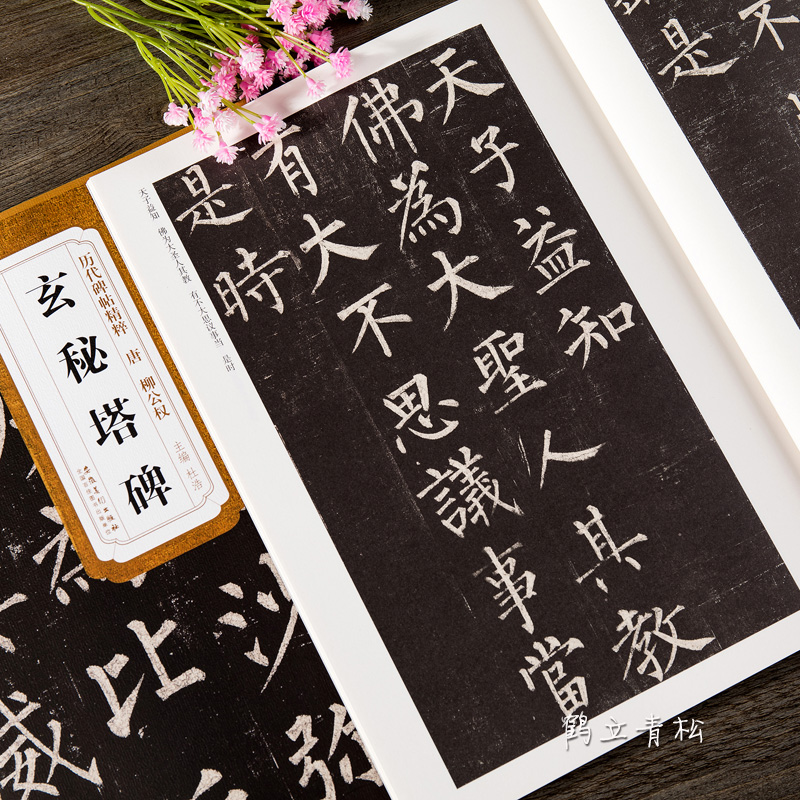 是
不
天子益知
佛為大聖人其教
有大不思議事當
是時
天子益知 佛为大圣人其教 有不大思议事当 是时
历代碑帖精粹 唐 柳公权
玄秘塔碑
主编 杜浩
安徽美术出版社
沙
比
威
鹤立青松